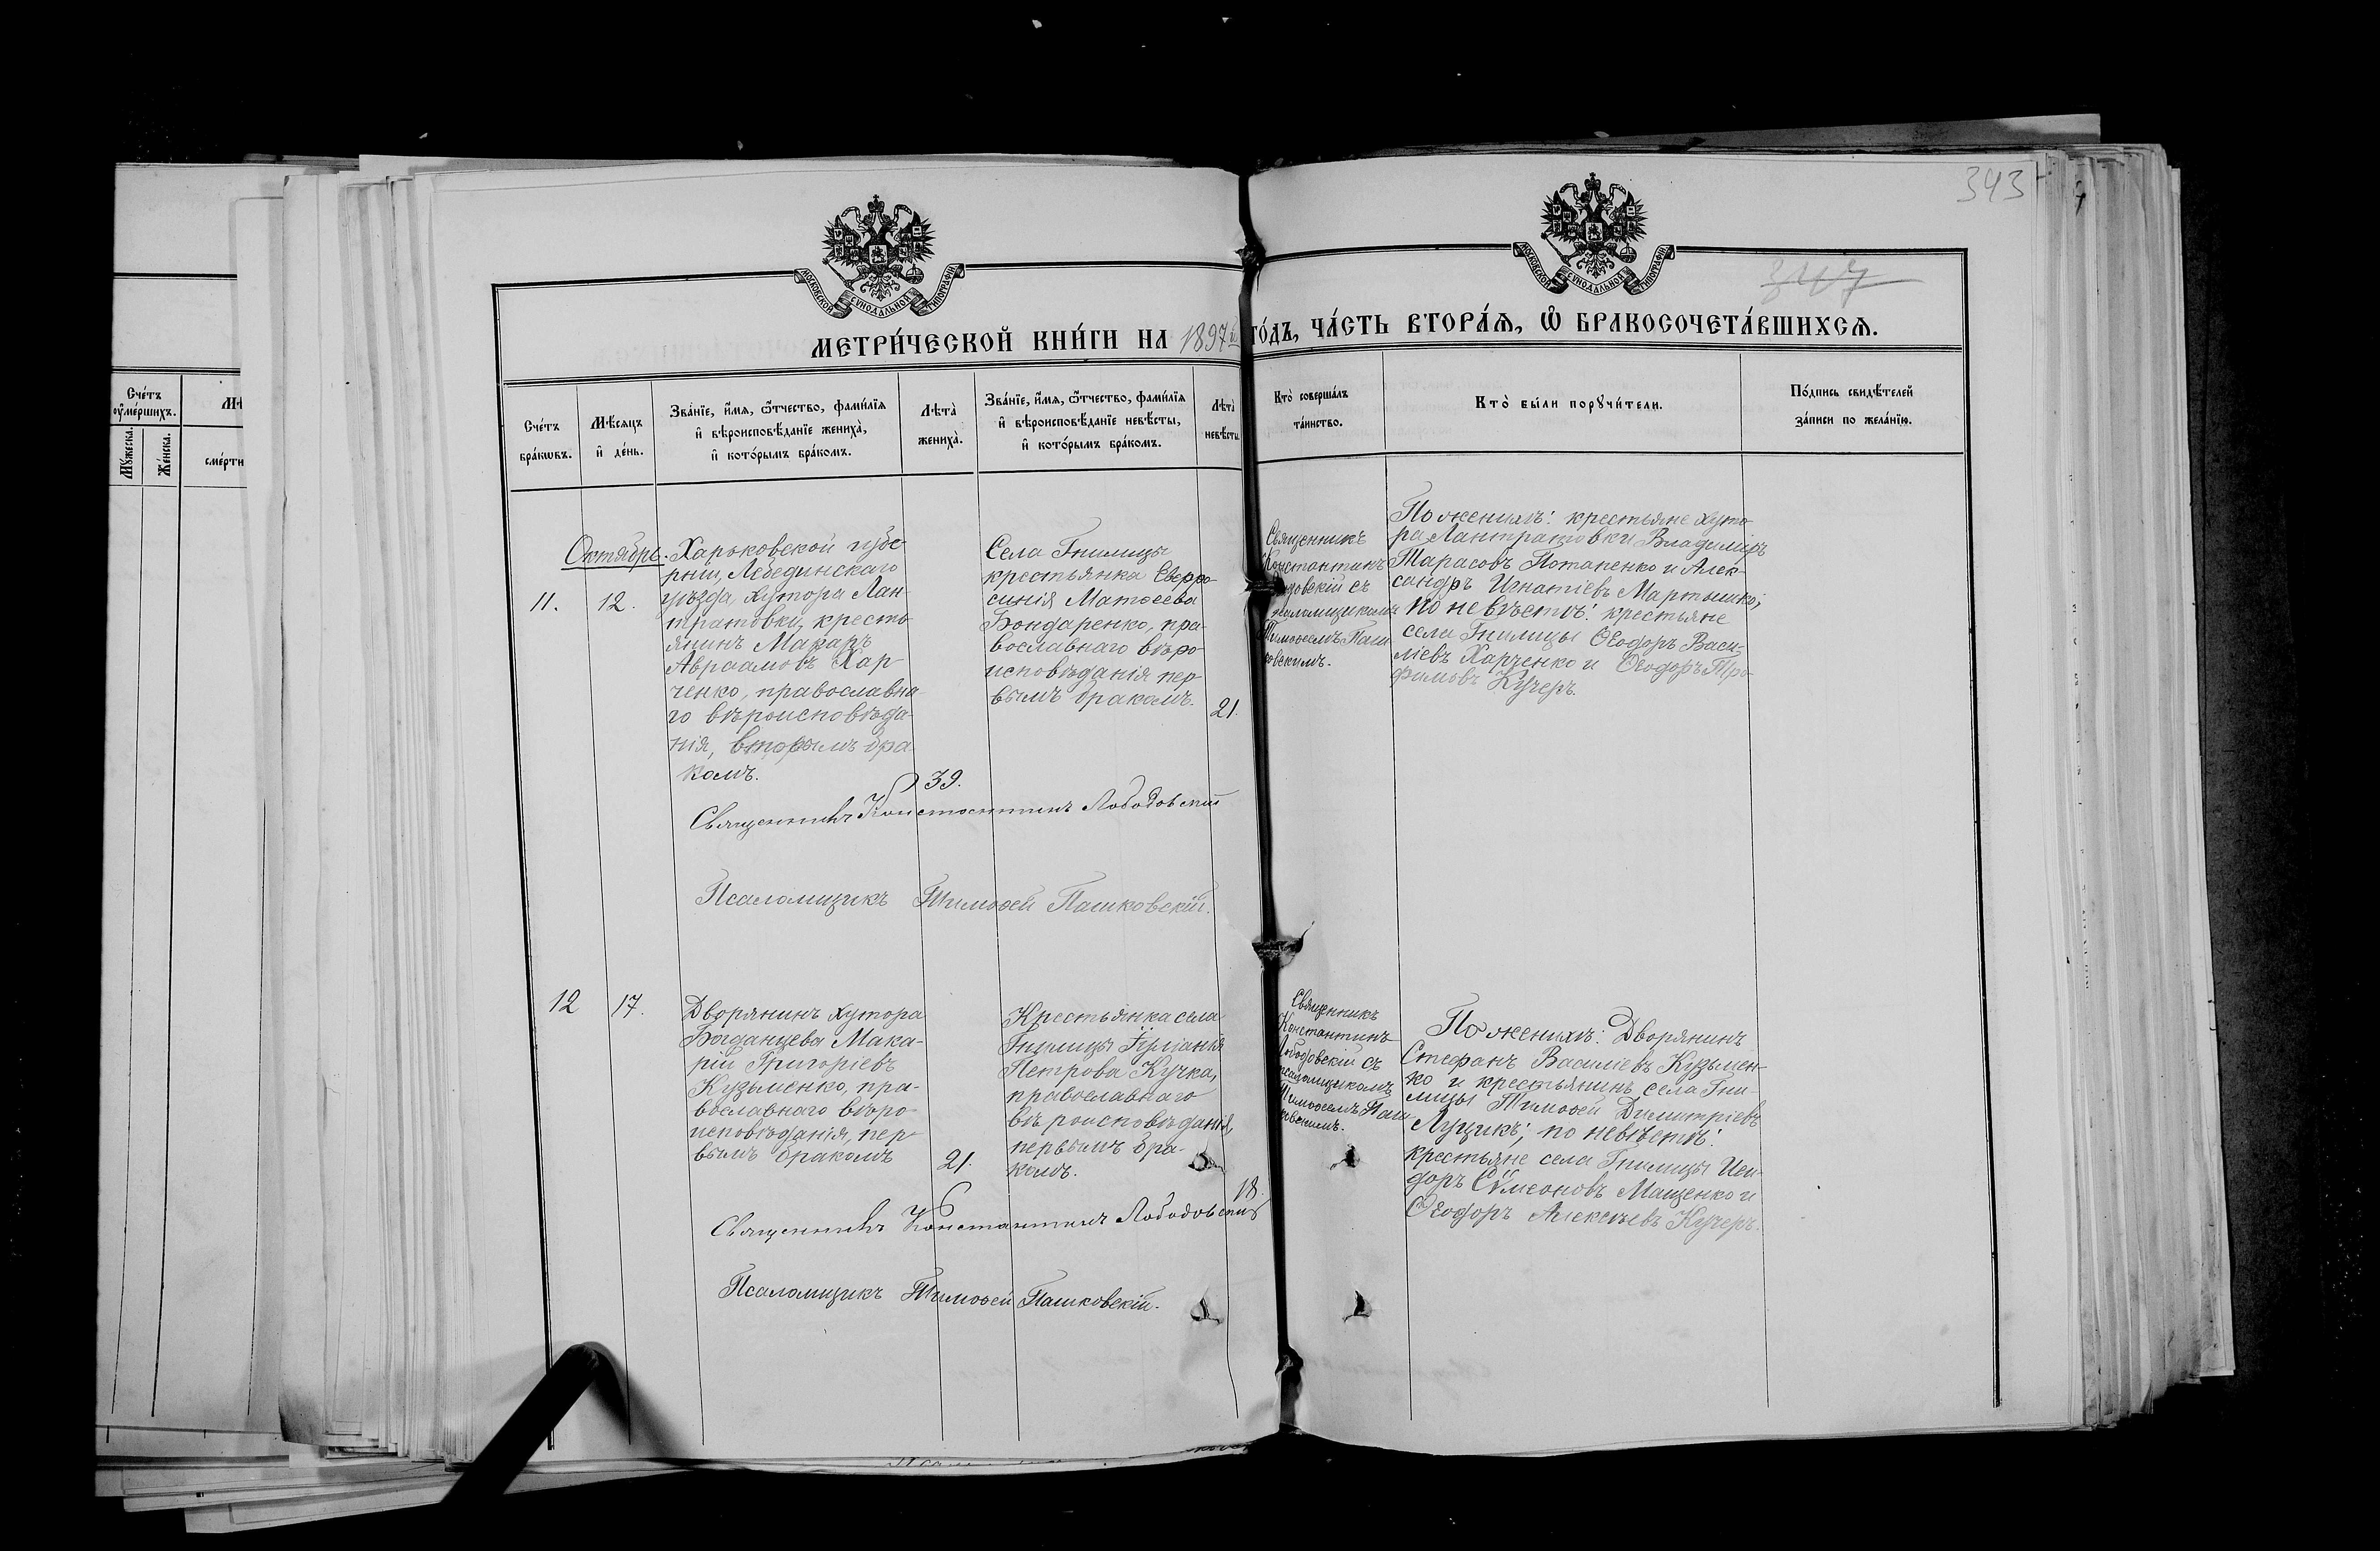 343
347
МОСКОВСКОЙ СѴНОДАЛЬНОЙ ТИПОГРАФІИ
МОСКОВСКОЙ СѴНОДАЛЬНОЙ ТИПОГРАФІИ
МЕТРИ́ЧЕСКОЙ КНИ́ГИ НА 1897й ГО́ДЪ, ЧА́СТЬ ВТОРА́Ѧ, Ѽ БРАКОСОЧЕТА́ВШИХСѦ.
Сче́тъ
оу҆ме́ршихъ.
Му́жеска.
Же́нска.
сме́рти
Сче́тъ
бра́кѡвъ.
Мѣ́сѧцъ
и҆ де́нь.
Зва́нїе, и҆́мѧ, ѻ҆́тчество, фамѝлїѧ
и҆ вѣроисповѣ́данїе женихà,
и҆ кото́рымъ бра́комъ.
Лѣтà
женихà.
Зва́нїе, и҆́мѧ, ѻ҆́тчество, фамѝлїѧ
и҆ вѣроисповѣ́данїе невѣ́сты,
и҆ кото́рымъ бра́комъ.
Лѣтà
невѣ́сты.
Кто̀ соверша́лъ
та́инство.
Кто̀ бы́ли порꙋчи́тели.
По́дпись свидѣ́телей
за́писи по жела́нїю.
Октябрь.
11.
12.
Харьковской губе
рніи, Лебединскаго
уѣзда, хутора Лан-
тратовки, кресть
янинъ Макаръ
Авраамовъ Хар
ченко, православна
го вѣроисповѣда-
нія, вторымъ бра
комъ.
39.
Села Гнилицы
крестьянка Евфро-
синія Матѳеева
Бондаренко, пра-
вославнаго вѣро
исповѣданія пер
вымъ бракомъ.
21.
Священникъ
Константинъ
Лободовскій съ
псаломщикомъ
Тимоѳеемъ Паш
ковскимъ.
По женихѣ: крестьяне хуто-
ра Лантратовки Владиміръ
Тарасовъ Потапенко и Алек-
сандръ Игнатіевъ Мартышко;
по невѣстѣ: крестьяне
села Гнилицы Ѳеодоръ Васи-
ліевъ Харченко и Ѳеодоръ Тро-
фимовъ Кучеръ.
Священникъ Константинъ Лободовскій
Псаломщикъ Тимоѳей Пашковскій.
12
17.
Дворянинъ хутора
Богданцева Мака-
рій Григоріевъ
Кузьменко, пра-
вославнаго вѣро-
исповѣданія, пер
вымъ бракомъ
21.
Крестьянка села
Гнилицы Іуліанія
Петрова Кучка,
православнаго
вѣроисповѣданія,
первымъ бра-
комъ.
18.
Священникъ
Константинъ
Лободовскій съ
псаломщикомъ
Тимоѳеемъ Паш
ковскимъ.
По женихѣ: Дворянинъ
Стефанъ Василіевъ Кузьмен-
ко и крестьянинъ села Гни-
лицы Тимоѳей Димитріевъ
Луцикъ; по невѣстѣ:
крестьяне села Гнилицы Иси-
доръ Сѵмеоновъ Мащенко и
Ѳеодоръ Алексѣевъ Кучеръ.
Священникъ Константинъ Лободовскій
Псаломщикъ Тимоѳей Пашковскій.